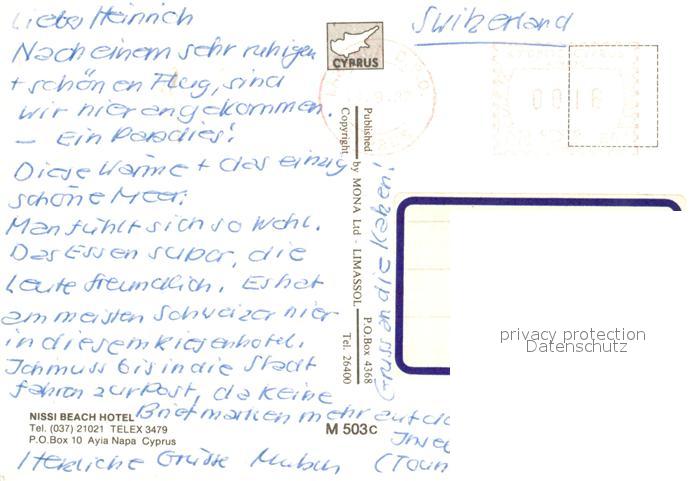 Lieber Heinrich
Nach einem sehr ruhigen
+ schönen Flug, sind
wir hier angekommen.
– Ein Paradies!
Diese Wärme + das einzig
schöne Meer.
Man fühlt sich so wohl.
Das Essen super, die
Leute freundlich. Es hat
am meisten Schweizer hier
in diesem Riesenhotel.
Ich muss bis in die Stadt
fahren zur Post, da keine
Briefmarken mehr auf de
Inse
(Tour
Herzliche Grüsse
NISSI BEACH HOTEL
Tel. (037) 21021 TELEX 3479
P.O.Box 10 Ayia Napa Cyprus
M 503c
CYPRUS
Published
Copyright by MONA Ltd - LIMASSOL
P.O.Box 4368
Tel. 26400
Switzerland
0016
privacy protection
Datenschutz